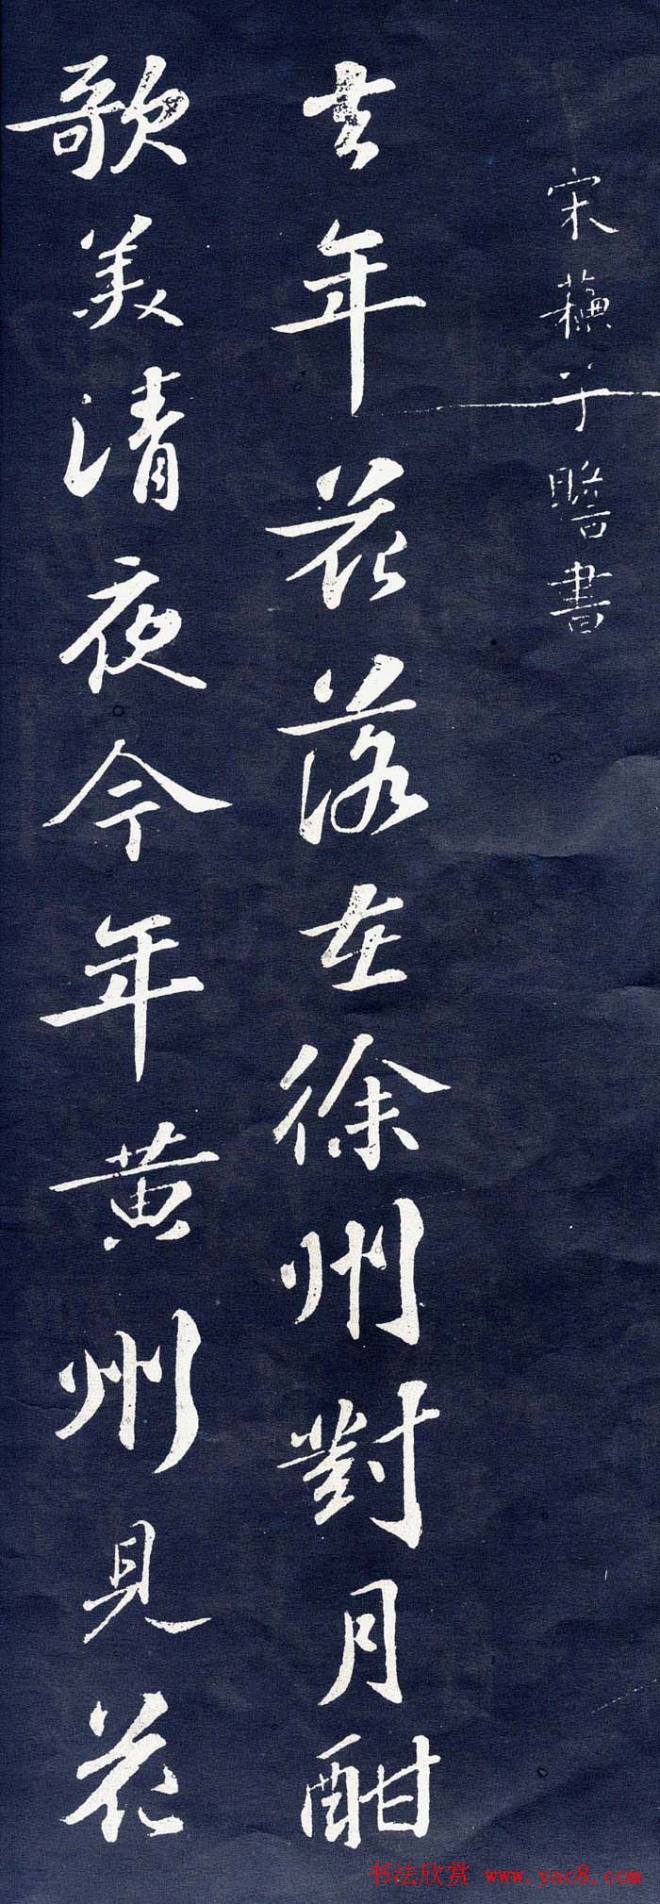 宋蘓子瞻書
去年花落在徐州對月酣
歌美清夜今年黄州見花
书法欣赏 www.yac8.com